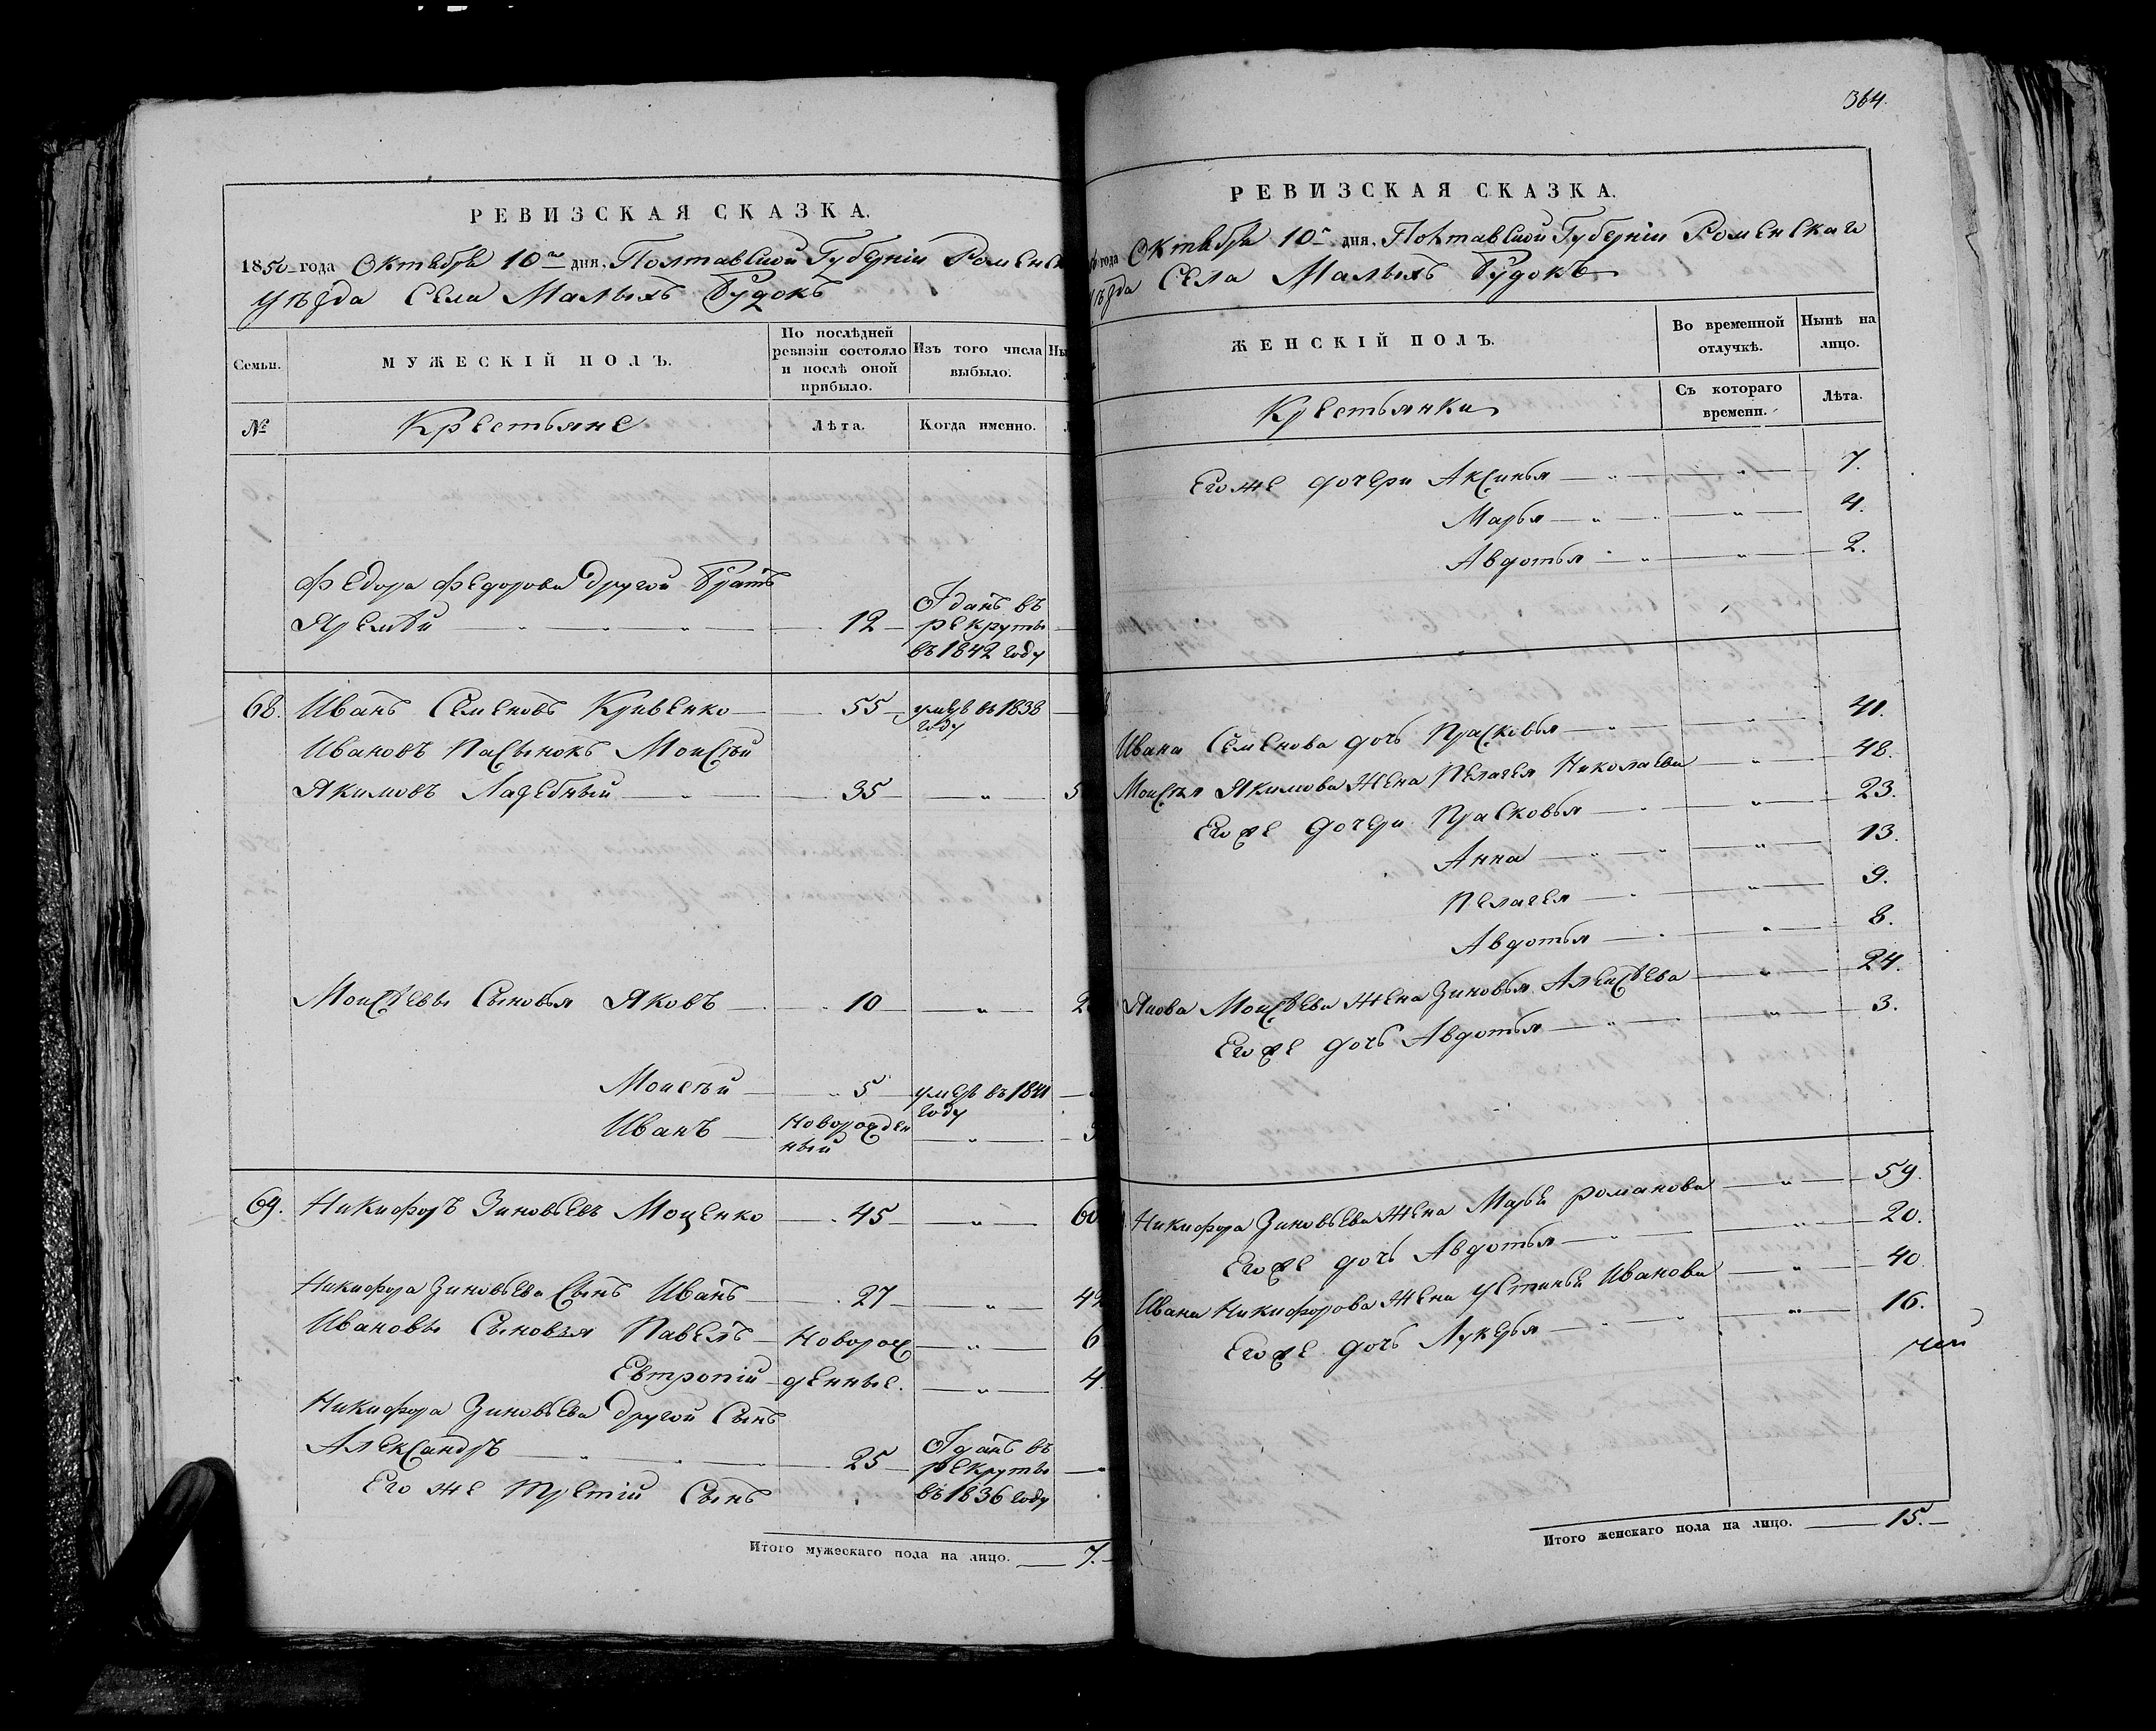 РЕВИЗСКАЯ СКАЗКА.
1850 года Октября 10го дня, Полтавской Губерніи Роменск
уѣзда Села Малыхъ Будокъ
Семьи.
МУЖЕСКІЙ ПОЛЪ.
По послѣдней ревизіи состояло и послѣ оной прибыло.
Изъ того числа выбыло.
№
Крестьяне
Лѣта.
Когда именно.
Федора Федорова другой братъ
Яремѣй 12 Отданъ въ рекруты въ 1842 году
68. Иванъ Семеновъ Кривенко 55 умеръ въ 1838 году
Ивановъ пасынокъ Моисѣй
Якимовъ 35 " 5
Моисѣевы сыновья Яковъ 10 " 2
Моисѣй 5 умеръ въ 1841 году
Иванъ новорожденный "
69. Никифоръ Зиновьевъ Моценко 45 " 60
Никифора Зиновьева сынъ Иванъ 27 " 42
Ивановы сыновья Павелъ новорож " 6
Евтропій денные. " 4
Никифора Зиновьева другой сынъ
Александръ 25 Отданъ въ рекруты въ 1836 году
Его же третій сынъ
Итого мужескаго пола на лицо. 7.
364.
РЕВИЗСКАЯ СКАЗКА.
года Октября 10го дня, Полтавской Губерніи Роменскаго
уѣзда Села Малыхъ Будокъ
ЖЕНСКІЙ ПОЛЪ.
Во временной отлучкѣ.
Нынѣ на лицо.
Крестьянки
Съ котораго времени.
Лѣта.
Его же дочери Аксинья " 7.
Марья " 4.
Авдотья " 2.
Ивана Семенова дочь Прасковья " 41.
Моисѣя Якимова жена Пелагея Николаева " 48.
Его же дочери Прасковья " 23.
Анна " 13.
Пелагея " 9.
Авдотья " 8.
Якова Моисѣева жена Зиновья Алексѣева " 24.
Его же дочь Авдотья " 3.
Никифора Зиновьева жена Марья Романова " 59.
Его же дочь Авдотья " 20.
Ивана Никифорова жена Устинья Иванова " 40
Его же дочь Лукерья " 16.
Итого женскаго пола на лицо. 15.